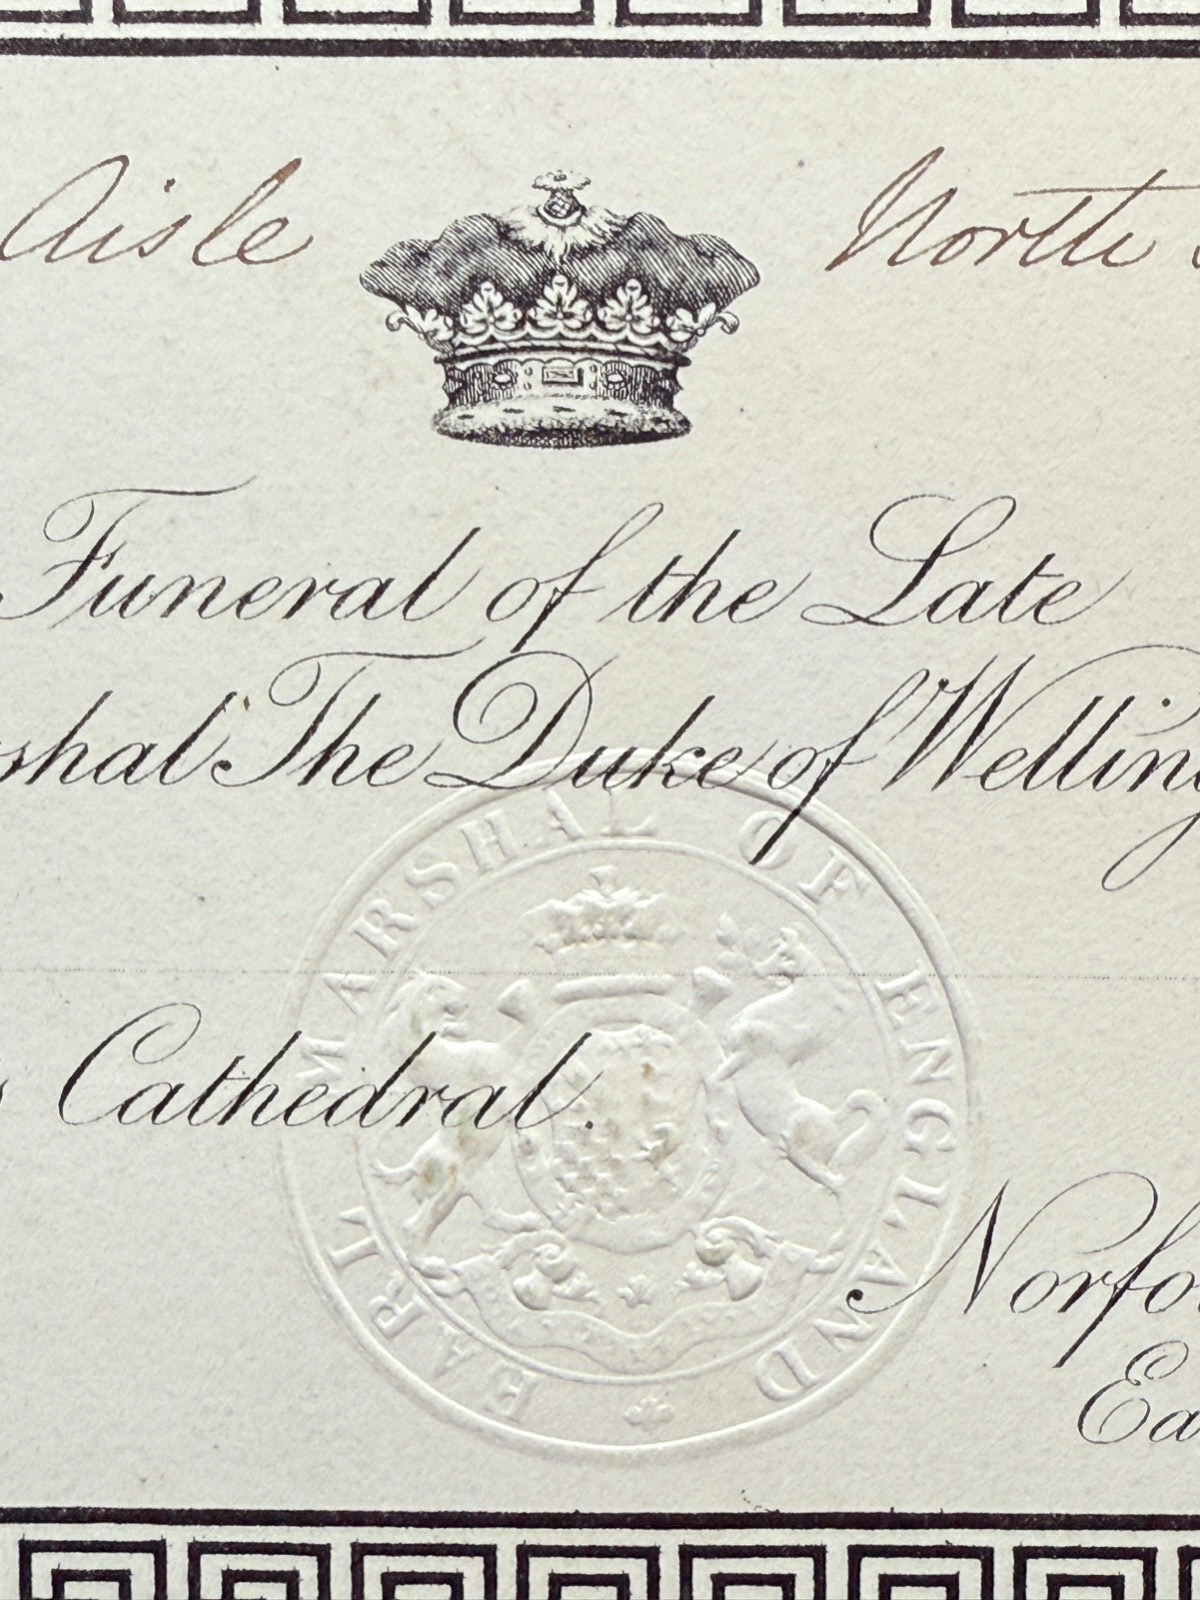 Aisle North
Funeral of the Late
shal The Duke of Welling
Cathedral.
Norfo
Ea
EARL MARSHAL OF ENGLAND